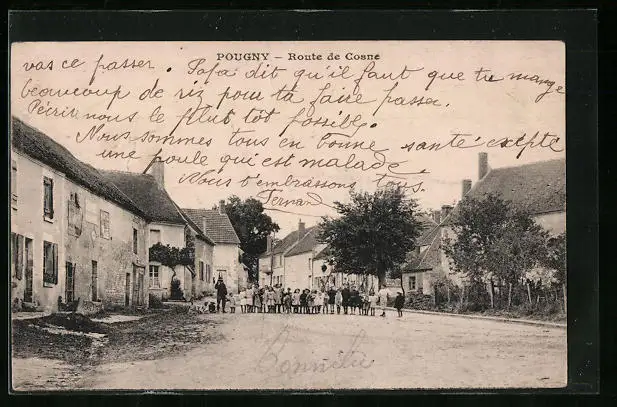 POUGNY – Route de Cosne
vas ce passer. Sofa dit qu'il faut que tu mange
beaucoup de riz pour ta faire passer.
Pécrir nous le plut tot possible.
Nous sommes tous en bonne santé excepté
une poule qui est malade
Nous t'embrassons tous.
Fernand